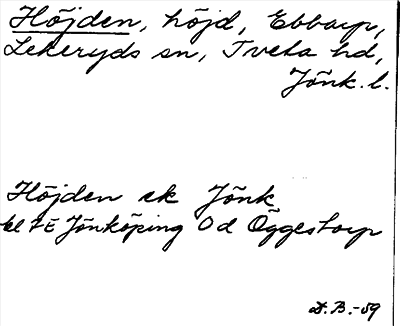 Höjden, höjd, Ebbarp,
Lekeryds sn, Tveta hd,
Jönk. l.
Höjden ek Jönk
bl 7E Jönköping Od Öggestorp
D.B.-59